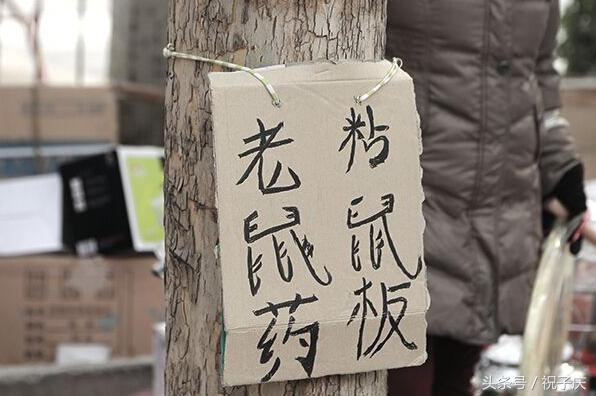 老鼠药
粘鼠板
头条号 / 祝子庆